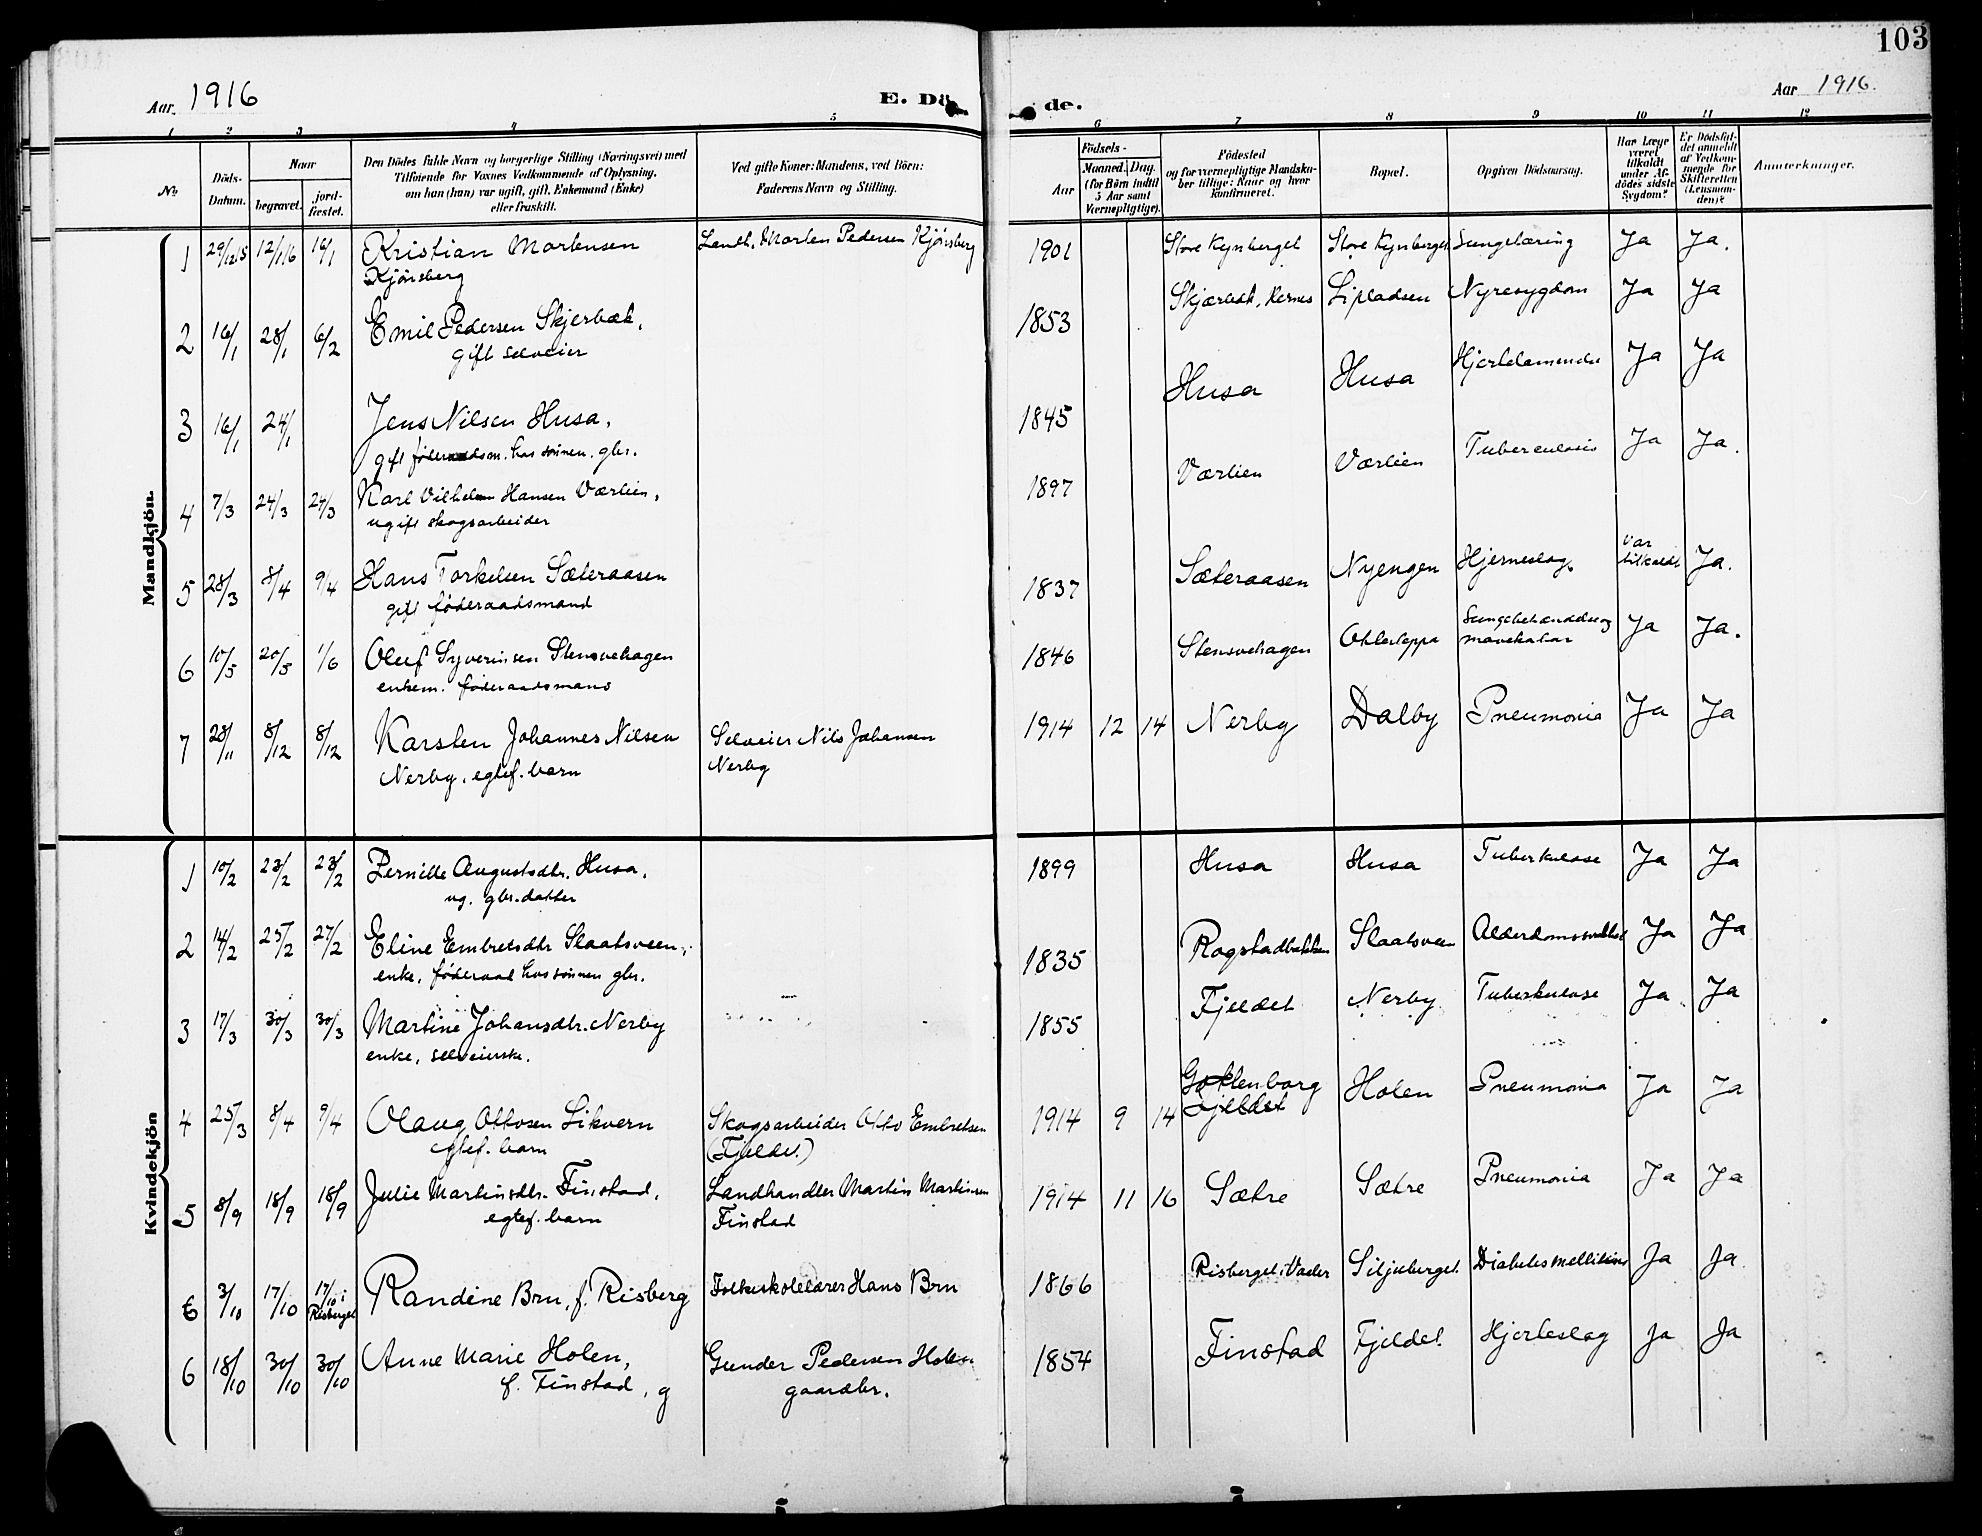 103
Aar. 1916
E. Dö
de.
Aar 1916.
1 2 3 4 5 6 7 8 9 10 11 12
No
Döds-Datum.
Naar
begravet.
jord-fæstet.
Den Dödes fulde Navn og borgerlige Stilling (Næringsvei) med
Tilföiende for Voxnes Vedkommende af Oplysning,
om han (hun) var ugift, gift, Enkemand (Enke)
eller fraskilt.
Ved gifte Koner: Mandens, ved Börn:
Faderens Navn og Stilling.
Födsels-
Aar
Maaned. Dag.
(for Börn indtil
5 Aar samt
Værnepligtige).
Födested
og for værnepligtige Mandska-
ber tillige: Naar og hvor
konfirmeret.
Bopæl.
Opgiven Dödsaarsag.
Har Læge
været
tilkaldt
under Af-
dödes sidste
Sygdom?
Er Dödsfal-
det anmeldt
af Vedkom-
mende for
Skifteretten
(Lensman-
den)?
Anmærkninger.
Mandkjön.
1 29/12 15 12/1 16 16/1 Kristian Mortensen Landh. Morten Pedersen Kjønsberg 1901 Store Kynberget Store Kynberget Lungetæring Ja Ja.
Kjønsberg
2 16/1 28/1 6/2 Emil Pedersen Skjerbæk, 1853 Skjærbæk, Hernes Lipladsen Nyresygdom Ja Ja
gift selveier
3 16/1 24/1 Jens Nilsen Husa, 1845 Husa Husa Hjertelammelse Ja Ja
gift føderaadsm. hos sønnen, gbr.
4 7/3 24/3 24/3 Karl Vilhelm Hansen Værlien, 1897 Værlien Værlien Tuberculosis Ja Ja.
ugift skogsarbeider
5 28/3 8/4 9/4 Hans Torkelsen Sæteraasen 1837 Sæteraasen Nyengen Hjerneslag. Var tilkaldt Ja.
gift føderaadsmand
6 10/5 20/5 1/6 Oluf Syverinsen Stensvehagen 1846 Stensvehagen Lungebetændelse og mavekatar Ja Ja.
enkem. føderaadsmand
7 28/11 8/12 8/12 Karsten Johannes Nilsen Selveier Nils Johansen 1914 12 14 Nerby Dalby Pneumonia Ja Ja
Nerby, egtef. barn Nerby
Kvindekjön
1 10/2 23/2 23/2 Pernille Augustsdtr. Husa, 1899 Husa Husa Tuberkulose Ja Ja
ug. gbr. datter
2 14/2 25/2 27/2 Eline Embretsdtr Slaatsveen, 1835 Rogstadbakken Slaatsveen Alderdomssvakhet Ja Ja
enke, føderaad hos sønnen gbr.
3 17/3 30/3 30/3 Martine Johansdtr. Nerby 1855 Fjeldet Nerby Tuberkulose Ja Ja
enke, selveierske.
4 25/3 8/4 9/4 Olaug Ottosen Likvern Skogsarbeider Otto Embretsen 1914 9 14 Fjeldet Holen Pneumonia Ja Ja
egtef. barn (Fjeldet)
5 8/9 18/9 18/9 Julie Martinsdtr. Finstad, Landhandler Martin Martinsen 1914 11 16 Sætre Sætre Pneumonia Ja Ja
egtef. barn Finstad
6 3/10 17/10 17/10 i Risberget Randine Brn, f. Risberg Folkeskolelærer Hans Brn 1866 Risberget i Vaaler Siljuberget. Diabetes mellitus Ja Ja
6 18/10 30/10 30/10 Anne Marie Holen, Gunder Pedersen Holen 1854 Finstad Fjeldet. Hjerteslag Ja Ja
f. Finstad, g gaardbr.